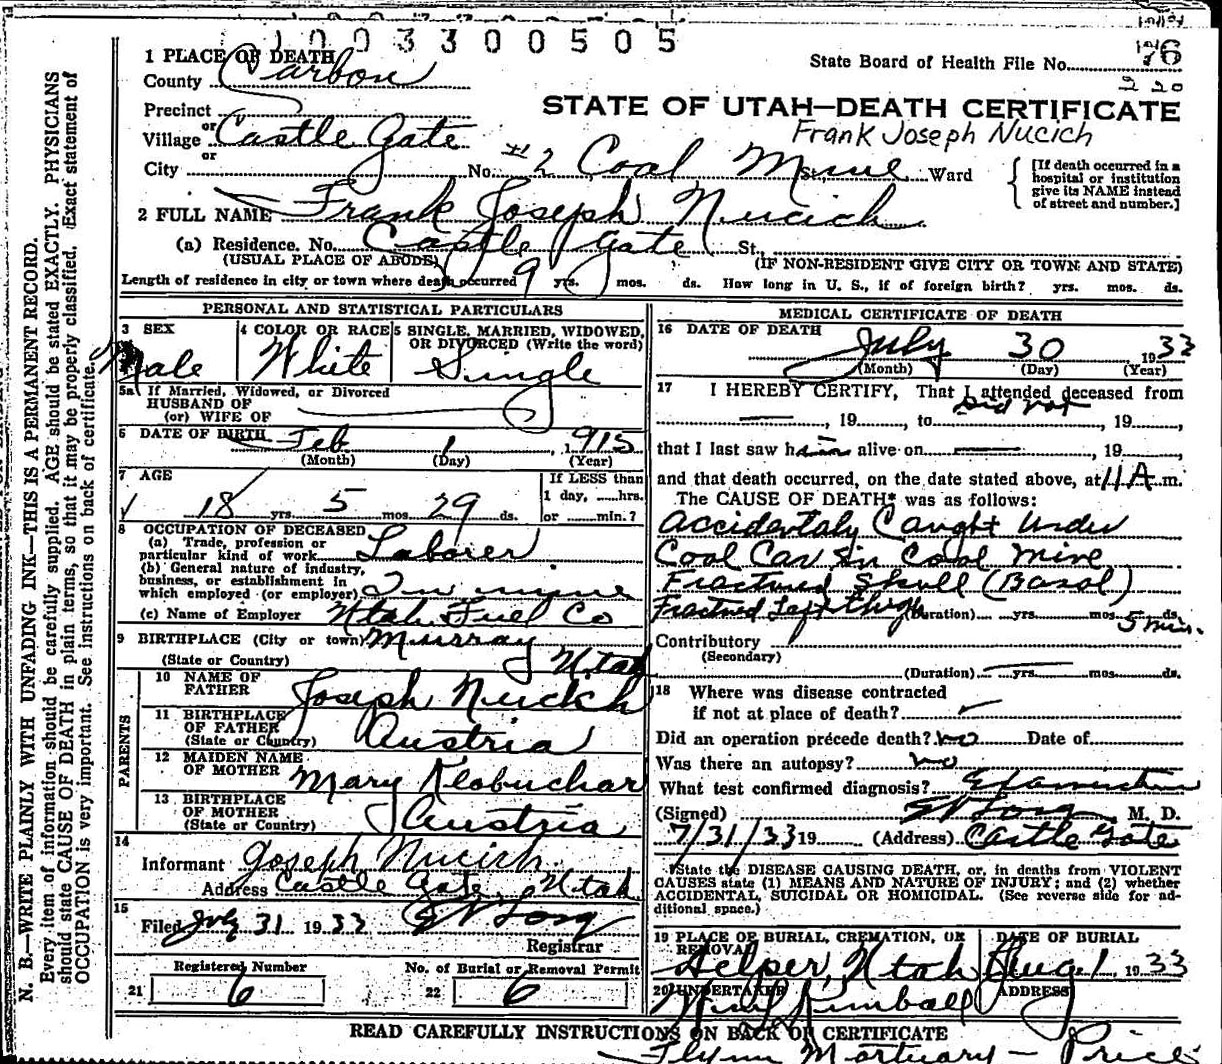 1003300505
1 PLACE OF DEATH
County Carbon
State Board of Health File No. 76
220
Precinct
STATE OF UTAH—DEATH CERTIFICATE
Frank Joseph Nucich
Village or Castle Gate
or
City No. #2 Coal Mine St., Ward
[If death occurred in a hospital or institution give its NAME instead of street and number.]
2 FULL NAME Frank Joseph Nucich
(a) Residence. No. Castle Gate St.,
(USUAL PLACE OF ABODE) (IF NON-RESIDENT GIVE CITY OR TOWN AND STATE)
Length of residence in city or town where death occurred 9 yrs. mos. ds. How long in U. S., if of foreign birth? yrs. mos. ds.
PERSONAL AND STATISTICAL PARTICULARS
3 SEX 4 COLOR OR RACE 5 SINGLE, MARRIED, WIDOWED, OR DIVORCED (Write the word)
Male White Single
5a If Married, Widowed, or Divorced
HUSBAND OF
(or) WIFE OF
6 DATE OF BIRTH Feb 1 1915
(Month) (Day) (Year)
7 AGE If LESS than
1 day, ......hrs.
18 yrs. 5 mos. 29 ds. or .......min.?
8 OCCUPATION OF DECEASED
(a) Trade, profession or
particular kind of work Laborer
(b) General nature of industry,
business, or establishment in
which employed (or employer) In mine
(c) Name of Employer Utah Fuel Co
9 BIRTHPLACE (City or town) Murray
(State or Country) Utah
PARENTS
10 NAME OF
FATHER Joseph Nucich
11 BIRTHPLACE
OF FATHER
(State or Country) Austria
12 MAIDEN NAME
OF MOTHER Mary Klobuchar
13 BIRTHPLACE
OF MOTHER
(State or Country) Austria
14
Informant Joseph Nucich
Address Castle Gate, Utah
15
Filed July 31 1933
Registrar
Registered Number No. of Burial or Removal Permit
21 6 22 6
MEDICAL CERTIFICATE OF DEATH
16 DATE OF DEATH July 30 1933
(Month) (Day) (Year)
17 I HEREBY CERTIFY, That I attended deceased from
did not
, 19 , to , 19 ,
that I last saw him alive on , 19 ,
and that death occurred, on the date stated above, at 11 A m.
The CAUSE OF DEATH* was as follows:
Accidentaly Caught Under
Coal Cars in Coal Mine
Fractured Skull (Basal)
Fractured Left thigh (Duration) yrs. mos. ds.
5 min.
Contributory
(Secondary)
(Duration) yrs. mos. ds.
18 Where was disease contracted
if not at place of death?
Did an operation precede death? no Date of
Was there an autopsy? no
What test confirmed diagnosis? Examination
(Signed) M. D.
7/31/33 19 (Address) Castle Gate
*State the DISEASE CAUSING DEATH, or, in deaths from VIOLENT
CAUSES state (1) MEANS AND NATURE OF INJURY; and (2) whether
ACCIDENTAL, SUICIDAL OR HOMICIDAL. (See reverse side for ad-
ditional space.)
19 PLACE OF BURIAL, CREMATION, OR REMOVAL DATE OF BURIAL
Helper, Utah Aug 1 1933
20 UNDERTAKER Kimball ADDRESS
READ CAREFULLY INSTRUCTIONS ON BACK OF CERTIFICATE
Flynn Mortuary — Price
N. B.—WRITE PLAINLY WITH UNFADING INK—THIS IS A PERMANENT RECORD.
Every item of information should be carefully supplied. AGE should be stated EXACTLY. PHYSICIANS
should state CAUSE OF DEATH in plain terms, so that it may be properly classified. Exact statement of
OCCUPATION is very important. See instructions on back of certificate.